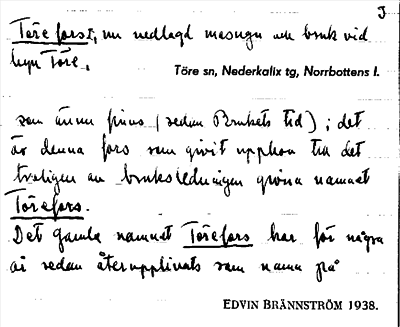 J
Töreforst, nu nedlagd masugn och bruk vid
byn Töre.
Töre sn, Nederkalix tg, Norrbottens l.
som ännu finns (sedan Brukets tid); det
är denna fors som givit upphov till det
troligen av bruksledningen givna namnet
Töreforst.
Det gamla namnet Törefors har för några
år sedan återupplivats som namn på
EDVIN BRÄNNSTRÖM 1938.